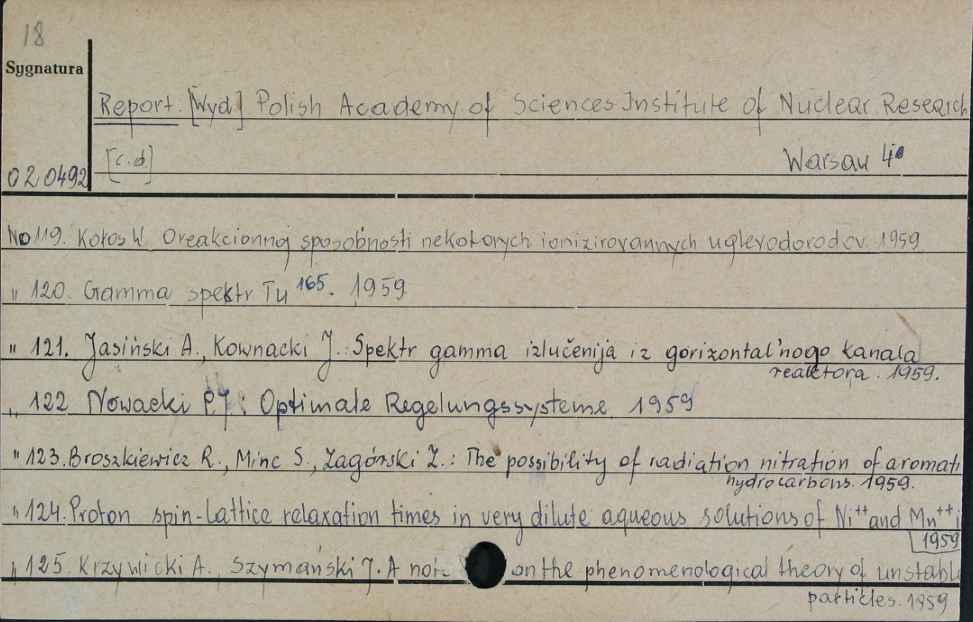 18
Sygnatura
Report. [Wyd.] Polish Academy of Sciences Institute of Nuclear Research
[c.d.]
Warsaw 4°
02.0492
No 119. Kołos W. O reakcionnoj sposobnosti nekotorych ionizirovannych uglevodorodov. 1959
" 120. Gamma spektr Tu 165. 1959
" 121. Jasiński A., Kownacki J.: Spektr gamma izlučenija iz gorizontal'nogo kanala
reaktora. 1959.
" 122 Nowacki P.J.: Optimale Regelungssysteme 1959
" 123. Broszkiewicz R., Minc S., Zagórski Z.: The possibility of radiation nitration of aromati
hydrocarbons. 1959.
" 124. Proton spin-lattice relaxation times in very dilute aqueous solutions of Ni++ and Mn++
1959
" 125. Krzywicki A., Szymański J. A not on the phenomenological theory of unstabl
particles. 1959